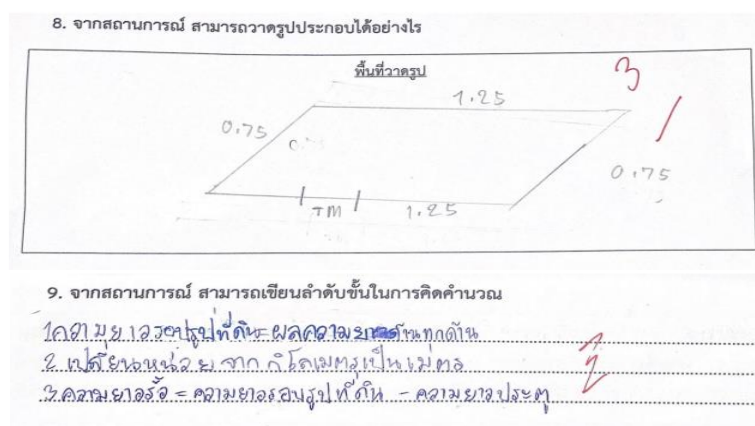 8. จากสถานการณ์ สามารถวาดรูปประกอบได้อย่างไร
พื้นที่วาดรูป
3
1.25
0.75
0.75
1.25
9. จากสถานการณ์ สามารถเขียนลำดับขั้นในการคิดคำนวณ
1ความยาวรอบรูปที่ดิน=ผลความยาวด้านทุกด้าน
2 เปลี่ยนหน่วยจากกิโลเมตรเป็นเมตร
3 ความยาวรั้ว = ความยาวรอบรูปที่ดิน - ความยาวประตู